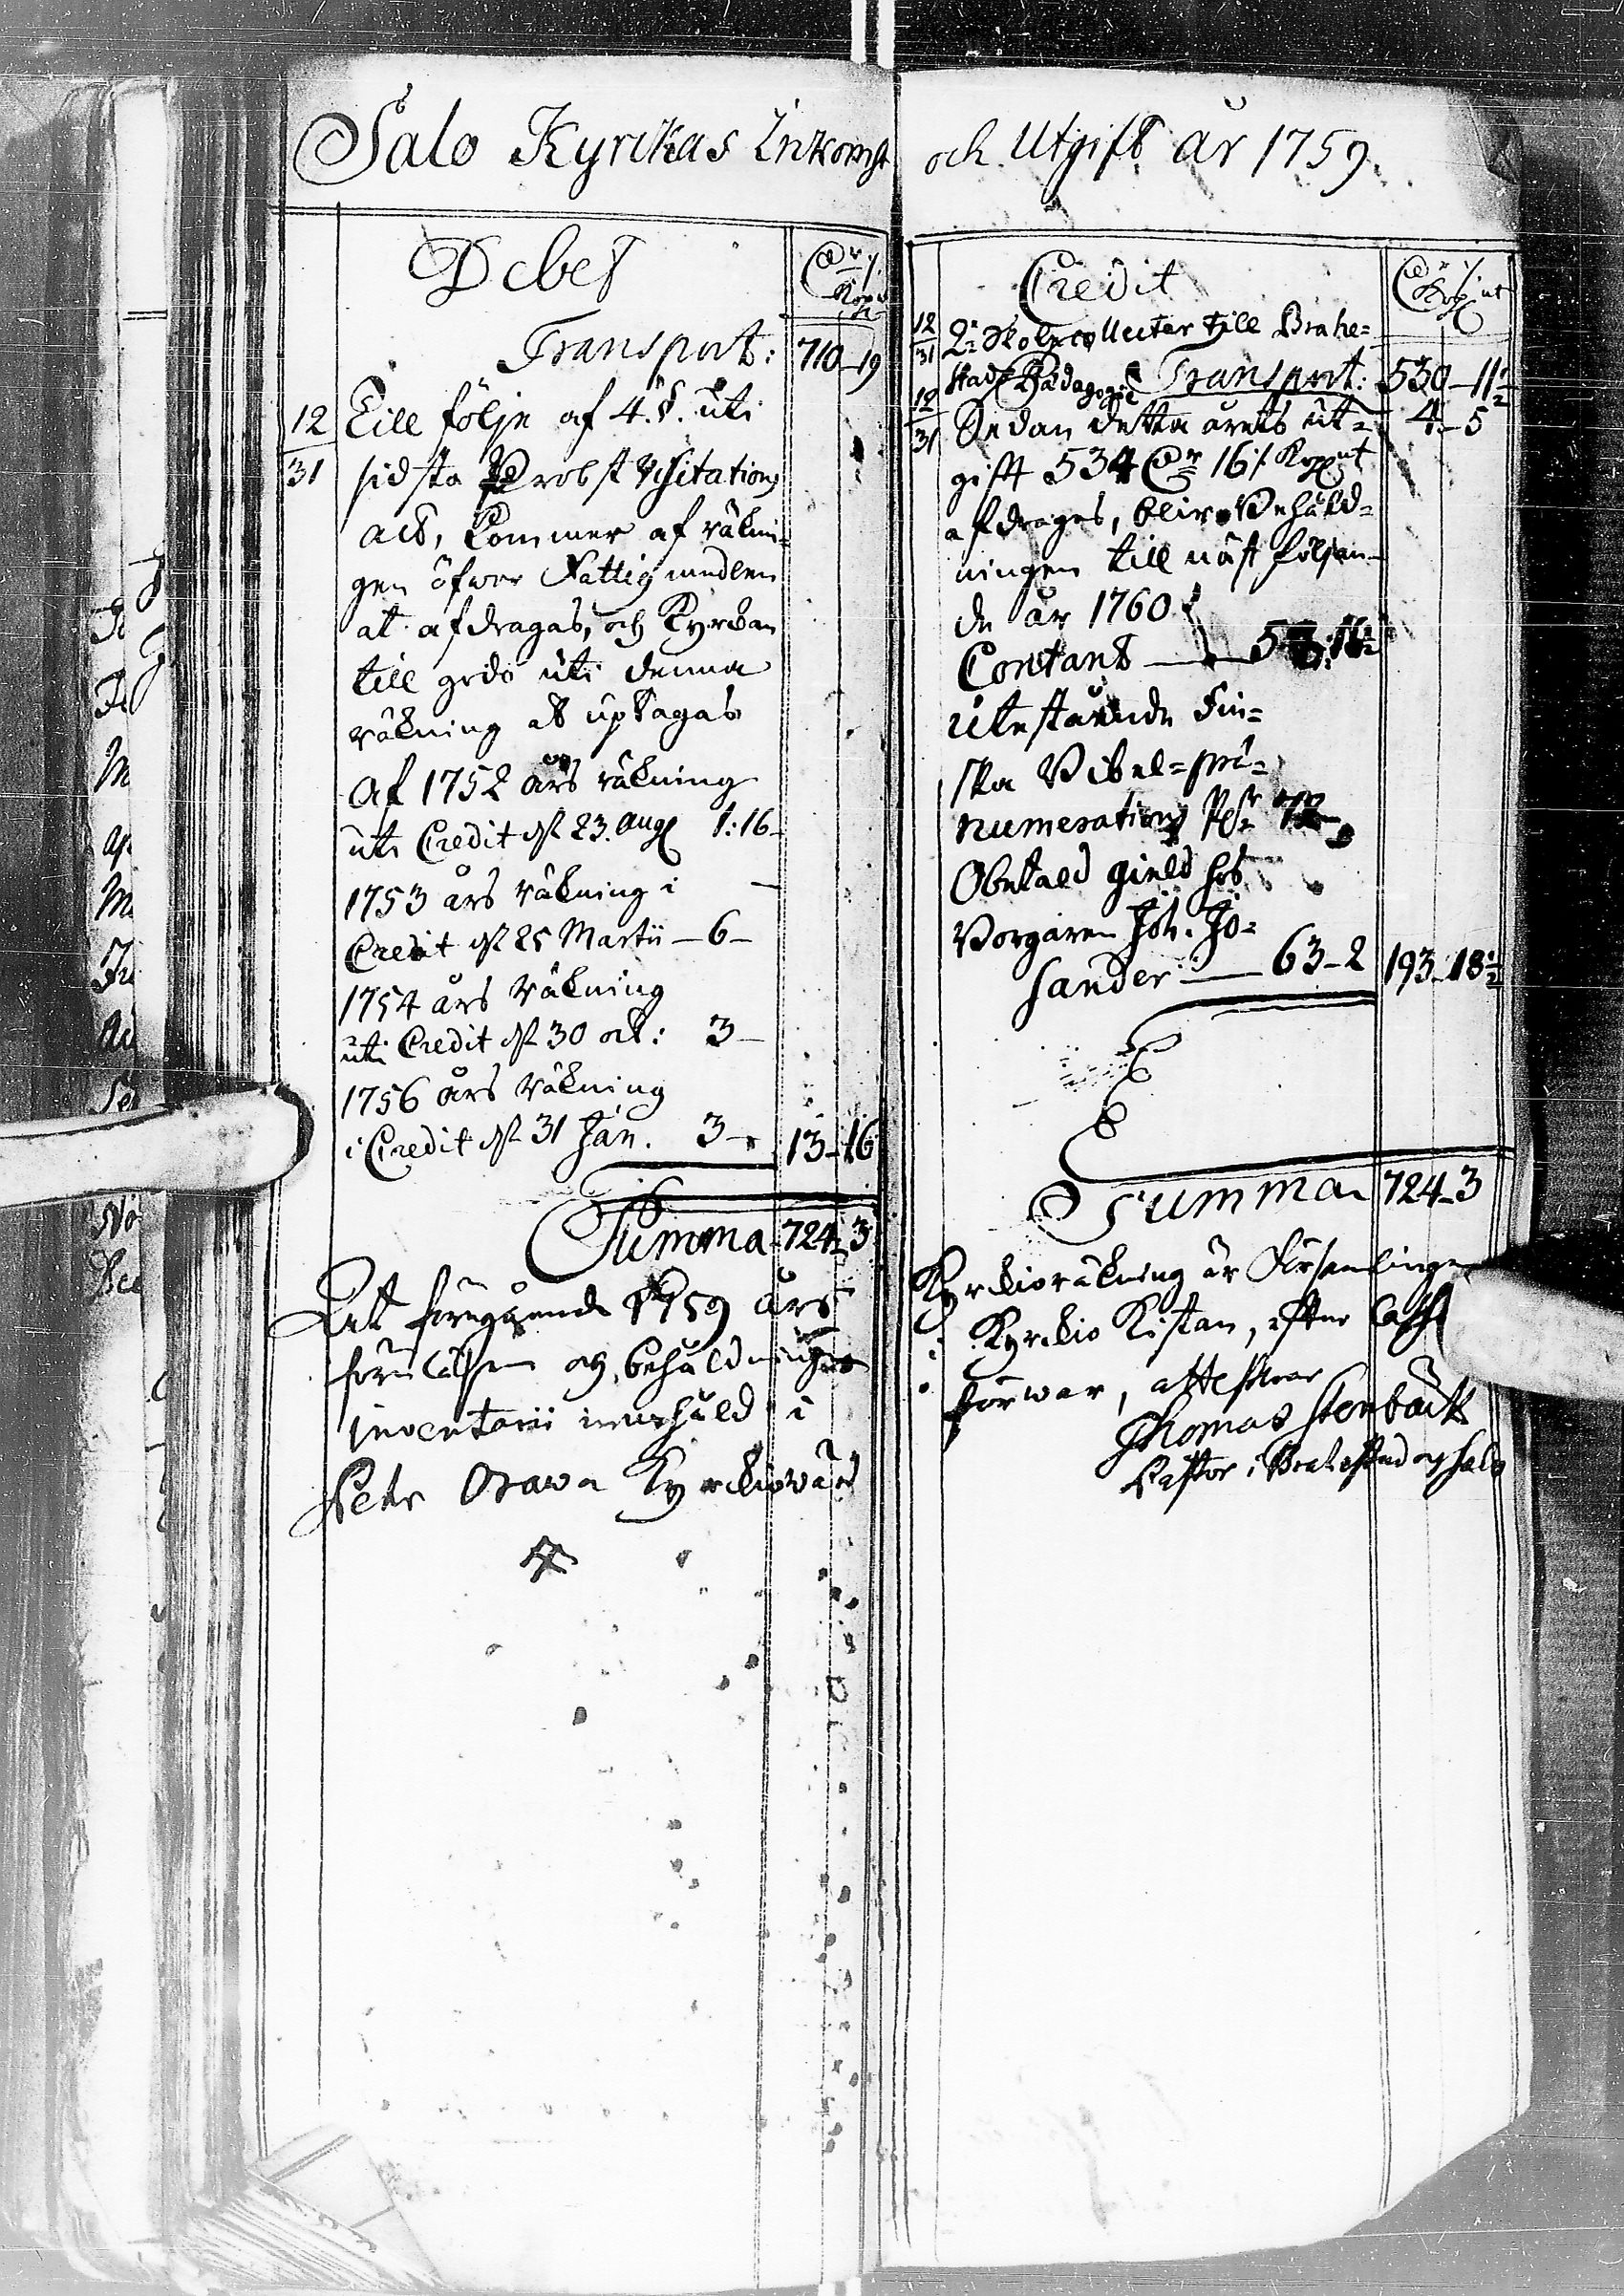 Salo Kyrckas Inkomst och Utgift år 1759.
Debet
Transport: 710-19
12/31 Till följe af 4. §. uti
sidsta Probst Visitations
act, kommer af räkni-
gen öfwer Fattig medlen
at afdragas, och Kyrckan
till godo uti denna
räkning at uptagas
Af 1752 års räkning
uti Credit d. 23. Aug 1:16-
1753 års räkning i
Credit d. 25 Martii - 6 -
1754 års räkning
uti Credit d. 30 oct: 3 -
1756 års räkning
i Credit d. 31 Jan. 3 - 13-16
Summa 724-3
Det föregående 1759 års
och behåldnings
inventarii innehåld i
Petr Orawa Kyrckiowärd
Credit
12/31 2:e Skole collecter till Brahe=
stads Pædagogie Transport: 530-11½
12/31 Sedan detta årets ut= 4-5
gifft 534 16
afdrages, blir Behåld=
ningen till näst följan-
de år 1760
Contant
utestående Fin=
ska Bibel=præ=
numerations
Obetald gield hos
Borgaren Joh. Jo=
sander - 63-2 193-18½
Summa 724-3
Kyrckioräkning är Församlingen
i Kyrckio Kistan, efter
förwar, attesterar
Thomas Stenbäck
Pastor i Brahestad och Salo